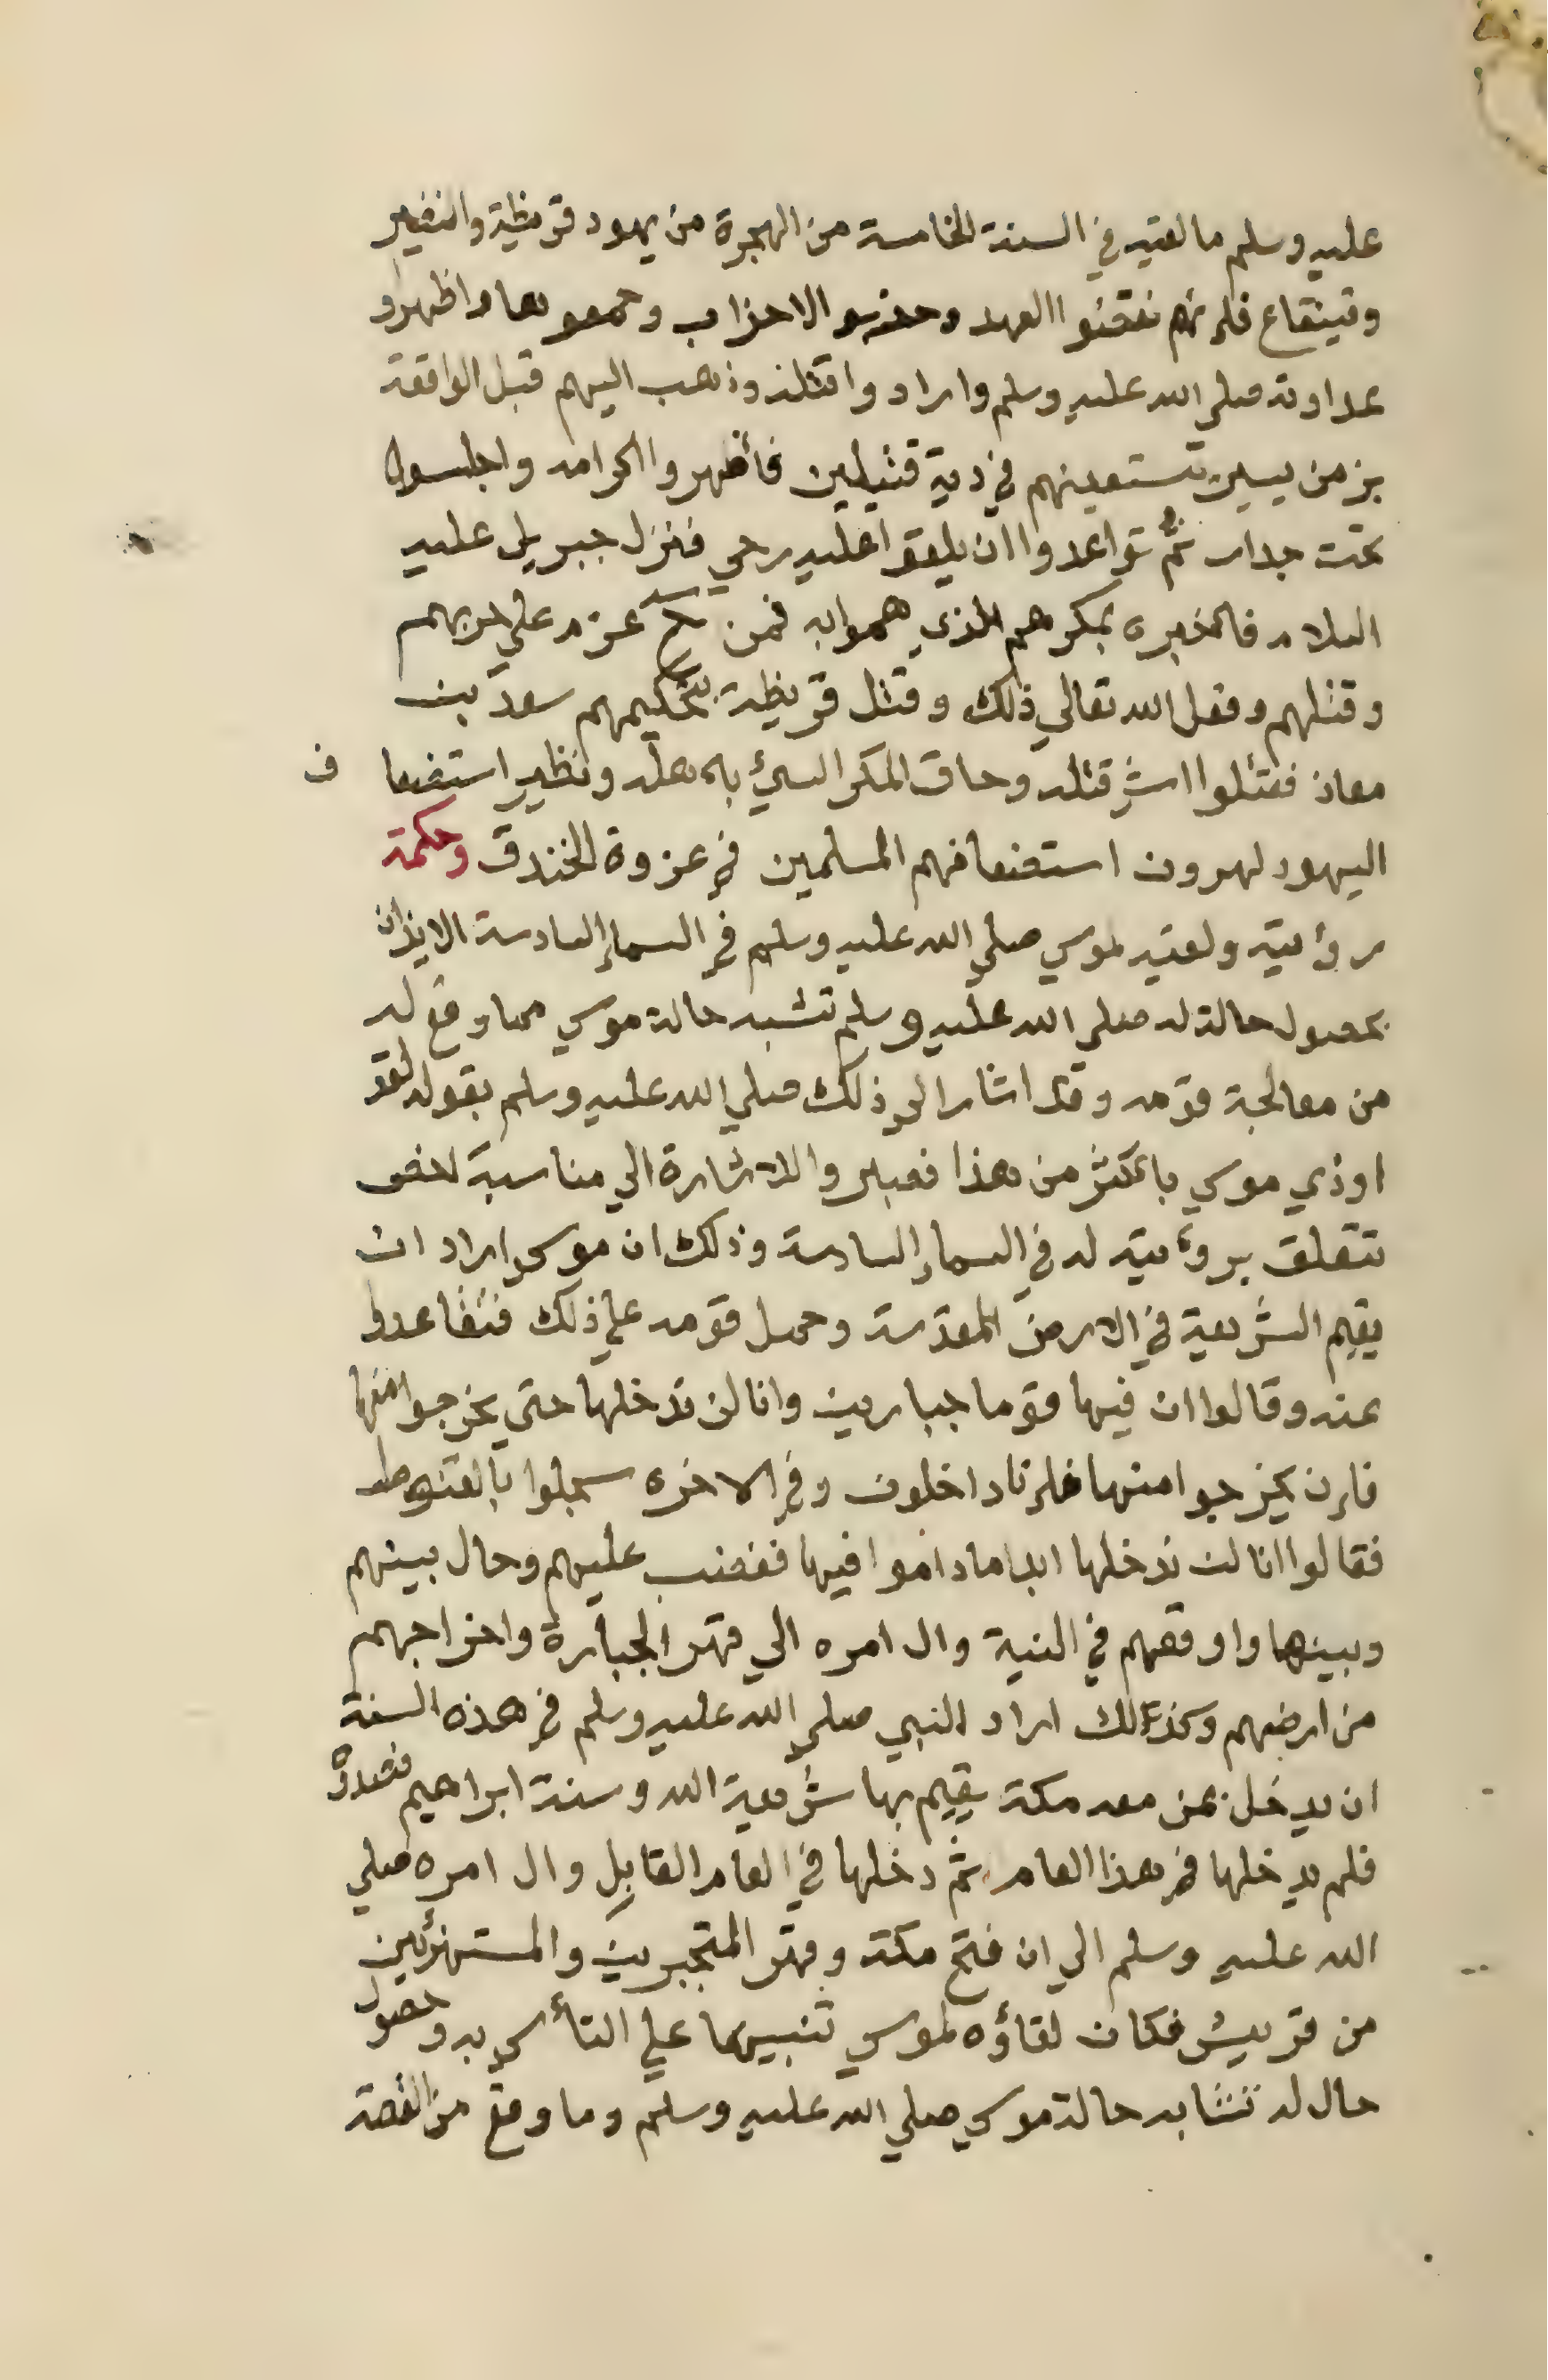 عليه وسلم ما لقيه في السنة الخامسة من الهجرة من يهود قريظة والنضير
وقينقاع فإنهم نقضوا العهد وحزبوا الاحزاب وجمعوها واظهروا
عداوته صلي الله عليه وسلم وارادوا قتله وذهب اليهم قبل الواقعة
بزمن يسير تستعينهم في دية قتيلين فأظهروا اكرامه واجلسوه
تحت جدار ثمَّ تواعدوا ان يلقوا عليه رحي فنزل جبريل عليه
السلام فاخبره بمكرهم الذي هموا به فمن ح عزم علي حربهم
وقتلهم وفعل الله تعالي ذلك وقتل قريظة بتحكيمهم سعد بن
معاذ فقتلوا اشر قتله وحاق المكر السيئ باهله ونظير استضعا ف
اليهود لهرون استضعافهم المسلمين في غزوة الخندق وحكمة
رؤيته ولقيه لموسي صلي الله عليه وسلم في السماء السادسة الايذان
بحصول حالة له صلي الله عليه وسلم تشبه حالة موسي مما وقع له
من معالجة قومه وقد اشار الي ذلك صلي الله عليه وسلم بقوله لقد
اوذي موسي باكثر من هذا فصبر والاشارة الي مناسبة اخص
تتعلق برؤيته له في السماء السادسة وذلك ان موسي اراد ان
يقيم الشريعة في الارض المقدسة وحمل قومه علي ذلك فتقاعدوا
عنه وقالوا ان فيها قوما جبارين وانا لن ندخلها حتي يخرجوا منها
فإن يخرجوا منها فإنا داخلون وفي الاخره سجلوا بالقنوط
فقالوا انا لن ندخلها ابدا ما داموا فيها فغضب عليهم وحال بينهم
وبينها واوقعهم في التية وال امره الي قهر الجبارة واخراجهم
من ارضهم وكذالك اراد النبي صلي الله عليه وسلم في هذه السنة
ان يدخل بمن معه مكة يقيم بها شريعة الله وسنة ابراهيم فصدوه
فلم يدخلها في هذا العام ثم دخلها في العام القابل وال امره صلي
الله عليه وسلم الي ان فتح مكة وقهر المتجبرين والمستهزئين
من قريش فكان لقاؤه لموسي تنبيها علي التأسي به وحصول
حال له تتشابه حالة موسي صلي الله عليه وسلم وما وقع من القصة